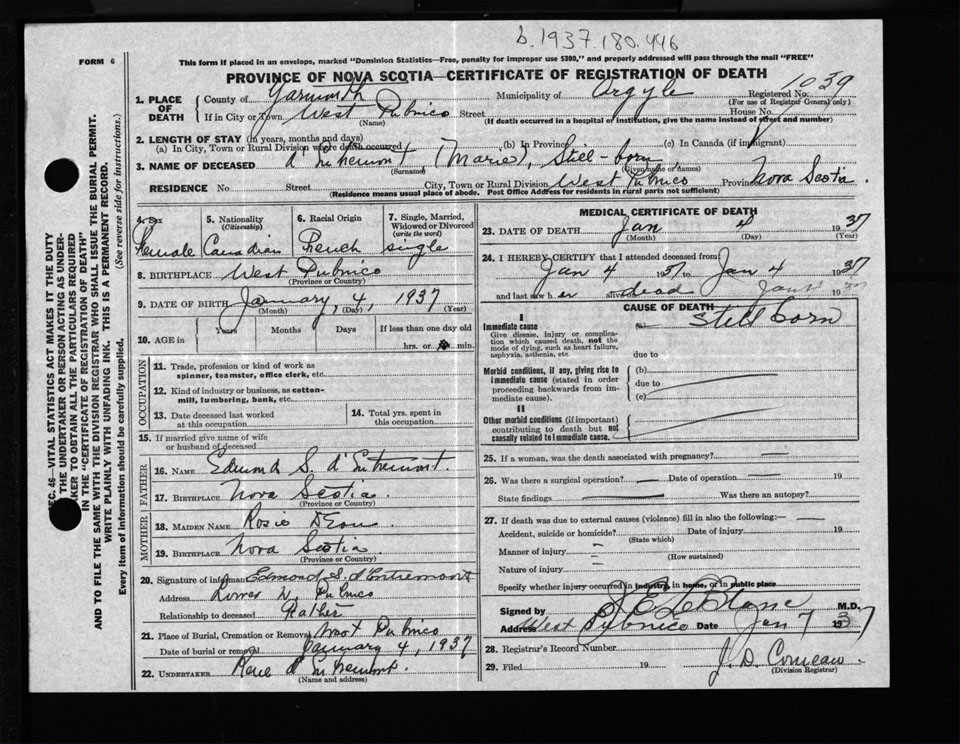 b.1937.180.446
FORM 6
This form if placed in an envelope, marked "Dominion Statistics—Free, penalty for improper use $300," and properly addressed will pass through the mail "FREE"
PROVINCE OF NOVA SCOTIA—CERTIFICATE OF REGISTRATION OF DEATH
1. PLACE OF DEATH
County of Yarmouth Municipality of Argyle Registered No. 1039
(For use of Registrar General only)
If in City or Town West Pubnico Street House No.
(Name) (If death occurred in a hospital or institution, give the name instead of street and number)
2. LENGTH OF STAY (in years, months and days)
(a) In City, Town or Rural Division where death occurred (b) In Province (c) In Canada (if immigrant)
3. NAME OF DECEASED d'Entremont, (Marie), Still-born
(Surname) (Given name or names)
RESIDENCE No. Street City, Town or Rural Division West Pubnico Province Nova Scotia
(Residence means usual place of abode. Post Office Address for residents in rural parts not sufficient)
4. Sex
Female
5. Nationality
(Citizenship)
Canadian
6. Racial Origin
French
7. Single, Married, Widowed or Divorced
(write the word)
single
8. BIRTHPLACE West Pubnico
(Province or Country)
9. DATE OF BIRTH January, 4, 1937
(Month) (Day) (Year)
10. AGE in Years Months Days If less than one day old
hrs. or min.
OCCUPATION
11. Trade, profession or kind of work as
spinner, teamster, office clerk, etc.
12. Kind of industry or business, as cotton-
mill, lumbering, bank, etc.
13. Date deceased last worked
at this occupation
14. Total yrs. spent in
this occupation
15. If married give name of wife
or husband of deceased
FATHER
16. NAME Edmund S. d'Entremont.
17. BIRTHPLACE Nova Scotia
(Province or Country)
MOTHER
18. MAIDEN NAME Rosie
19. BIRTHPLACE Nova Scotia
(Province or Country)
20. Signature of informant Edmond S. d'Entremont
Address Lower W. Pubnico
Relationship to deceased Father
21. Place of Burial, Cremation or Removal West Pubnico
Date of burial or removal January 4, 1937
22. UNDERTAKER René d'Entremont.
(Name and address)
MEDICAL CERTIFICATE OF DEATH
23. DATE OF DEATH Jan 4 1937
(Month) (Day) (Year)
24. I HEREBY CERTIFY that I attended deceased from:
Jan 4 1937 to Jan 4 1937
and last saw h er alive on dead Jan 4 1937
CAUSE OF DEATH
I
Immediate cause
Give disease, injury or complica-
tion which caused death, not the
mode of dying, such as heart failure,
asphyxia, asthenia, etc.
(a) Still born
due to
Morbid conditions, if any, giving rise to
immediate cause (stated in order
proceeding backwards from im-
mediate cause).
(b)
due to
(c)
II
Other morbid conditions (if important)
contributing to death but not
causally related to immediate cause.
25. If a woman, was the death associated with pregnancy? —
26. Was there a surgical operation? — Date of operation 19
State findings Was there an autopsy?
27. If death was due to external causes (violence) fill in also the following:—
Accident, suicide or homicide? Date of injury 19
(State which)
Manner of injury
(How sustained)
Nature of injury
Specify whether injury occurred in industry, in home, or in public place
Signed by J. E. LeBlanc M.D.
Address West Pubnico Date Jan 7 1937
28. Registrar's Record Number
29. Filed 19 J. D. Comeau.
(Division Registrar)
SEC. 46—VITAL STATISTICS ACT MAKES IT THE DUTY
THE UNDERTAKER OR PERSON ACTING AS UNDER-
TAKER TO OBTAIN ALL THE PARTICULARS REQUIRED
IN THE "CERTIFICATE OF REGISTRATION OF DEATH"
AND TO FILE THE SAME WITH THE DIVISION REGISTRAR WHO SHALL ISSUE THE BURIAL PERMIT.
WRITE PLAINLY WITH UNFADING INK. THIS IS A PERMANENT RECORD.
Every item of information should be carefully supplied. (See reverse side for instructions.)